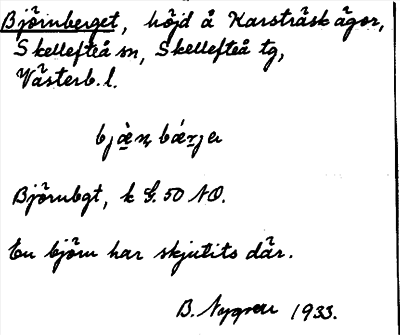 Björnberget, höjd å Karsträsk ägor,
Skellefteå sn, Skellefteå tg,
Västerb. l.
bjæ̀ṇ bǽrjeɹ
Björnbgt, k G. 50 NO.
En björn har skjutits där.
B. Nygren 1933.